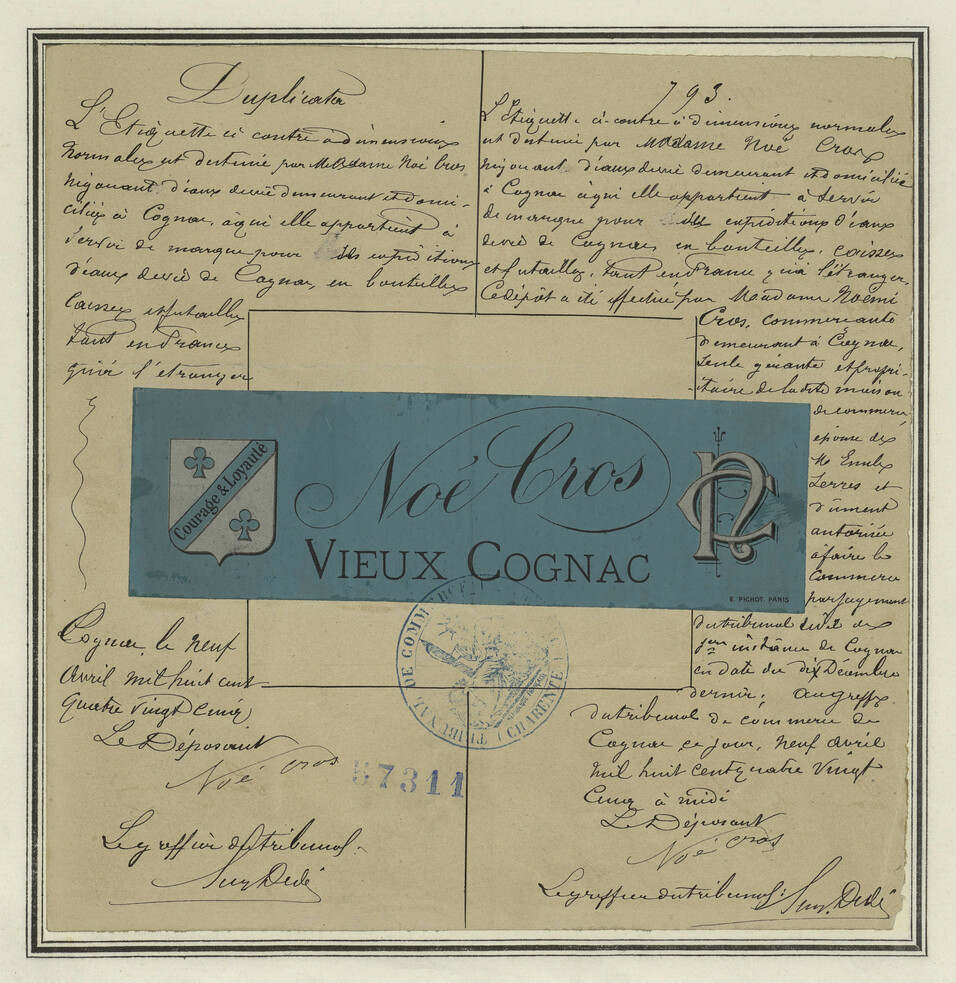 Duplicata
L'Etiquette ci contre à dimensions
normales est destinée par Madame Noé Cros
négociant d'eaux devie demeurant et domi-
ciliée à Cognac, à qui elle appartient à
servir de marque pour ses expéditions
d'eaux devie de Cognac, en bouteilles
caisses et futailles
tant en France
qu'à l'étranger
Cognac, le neuf
Avril mil huit cent
quatre vingt cinq
Le Déposant
Noé Cros
57311
Le greffier du tribunal.
793.
L'Etiquette ci-contre à dimensions normales
est destinée par Madame Noé Cros
négociant d'eaux devie demeurant et domiciliée
à Cognac à qui elle appartient à servir
de marque pour ses expéditions d'eaux
devie de Cognac, en bouteilles, caisses
et futailles, tant en France qu'à l'étranger,
Ce dépôt a été effectué par Madame Noémi
Cros, commerçante
demeurant à Cognac,
seule gérante et propri-
étaire de la dite maison
de commerce,
épouse de
M. Emile
Serres et
dûment
autorisée
à faire le
Commerce
par jugement
du tribunal civil de
1ère instance de Cognac
en date du dix Décembre
dernier, au greffe
du tribunal de commerce de
Cognac ce jour, neuf Avril
mil huit cent quatre vingt
Cinq à midi
Le Déposant
Noé Cros
Le greffier du tribunal:
Courage & Loyauté
Noé Cros
VIEUX COGNAC
E. PICHOT. PARIS
TRIBUNAL DE COMMERCE
CHARENTE